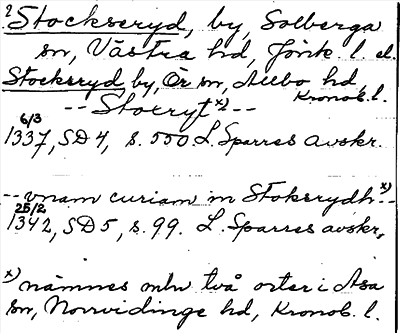 2 Stockseryd, by, Solberga
sn, Västra hd, Jönk. l. el.
Stocksryd by, Or sn, Allbo hd
Kronob. l.
-- Stocryt x) --
6/3
1337, SD 4, s. 550. L. Sparres avskr.
-- vnam curiam in Stoksrydh x) --
25/2
1342, SD 5, s. 99. L. Sparres avskr,
x) nämnes mhv två orter i Asa
sn, Norrvidinge hd, Kronob. l.